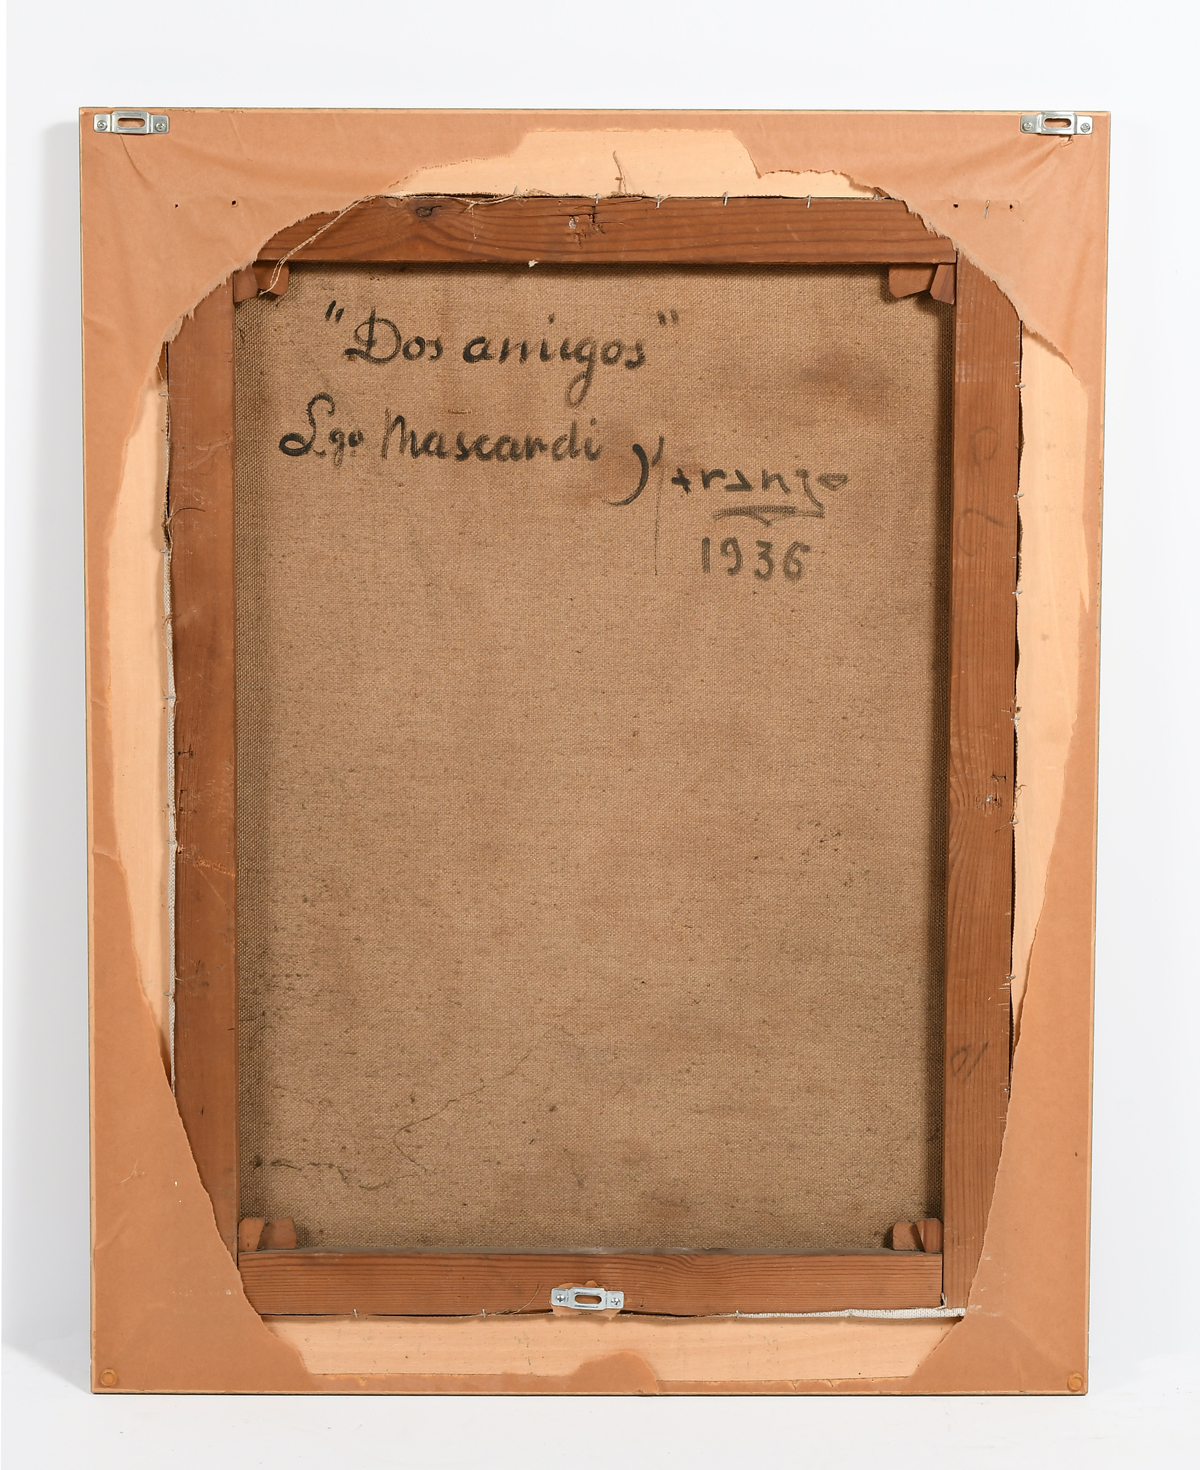 "Dos amigos"
Lgo Mascardi
Yaranzo
1936
10